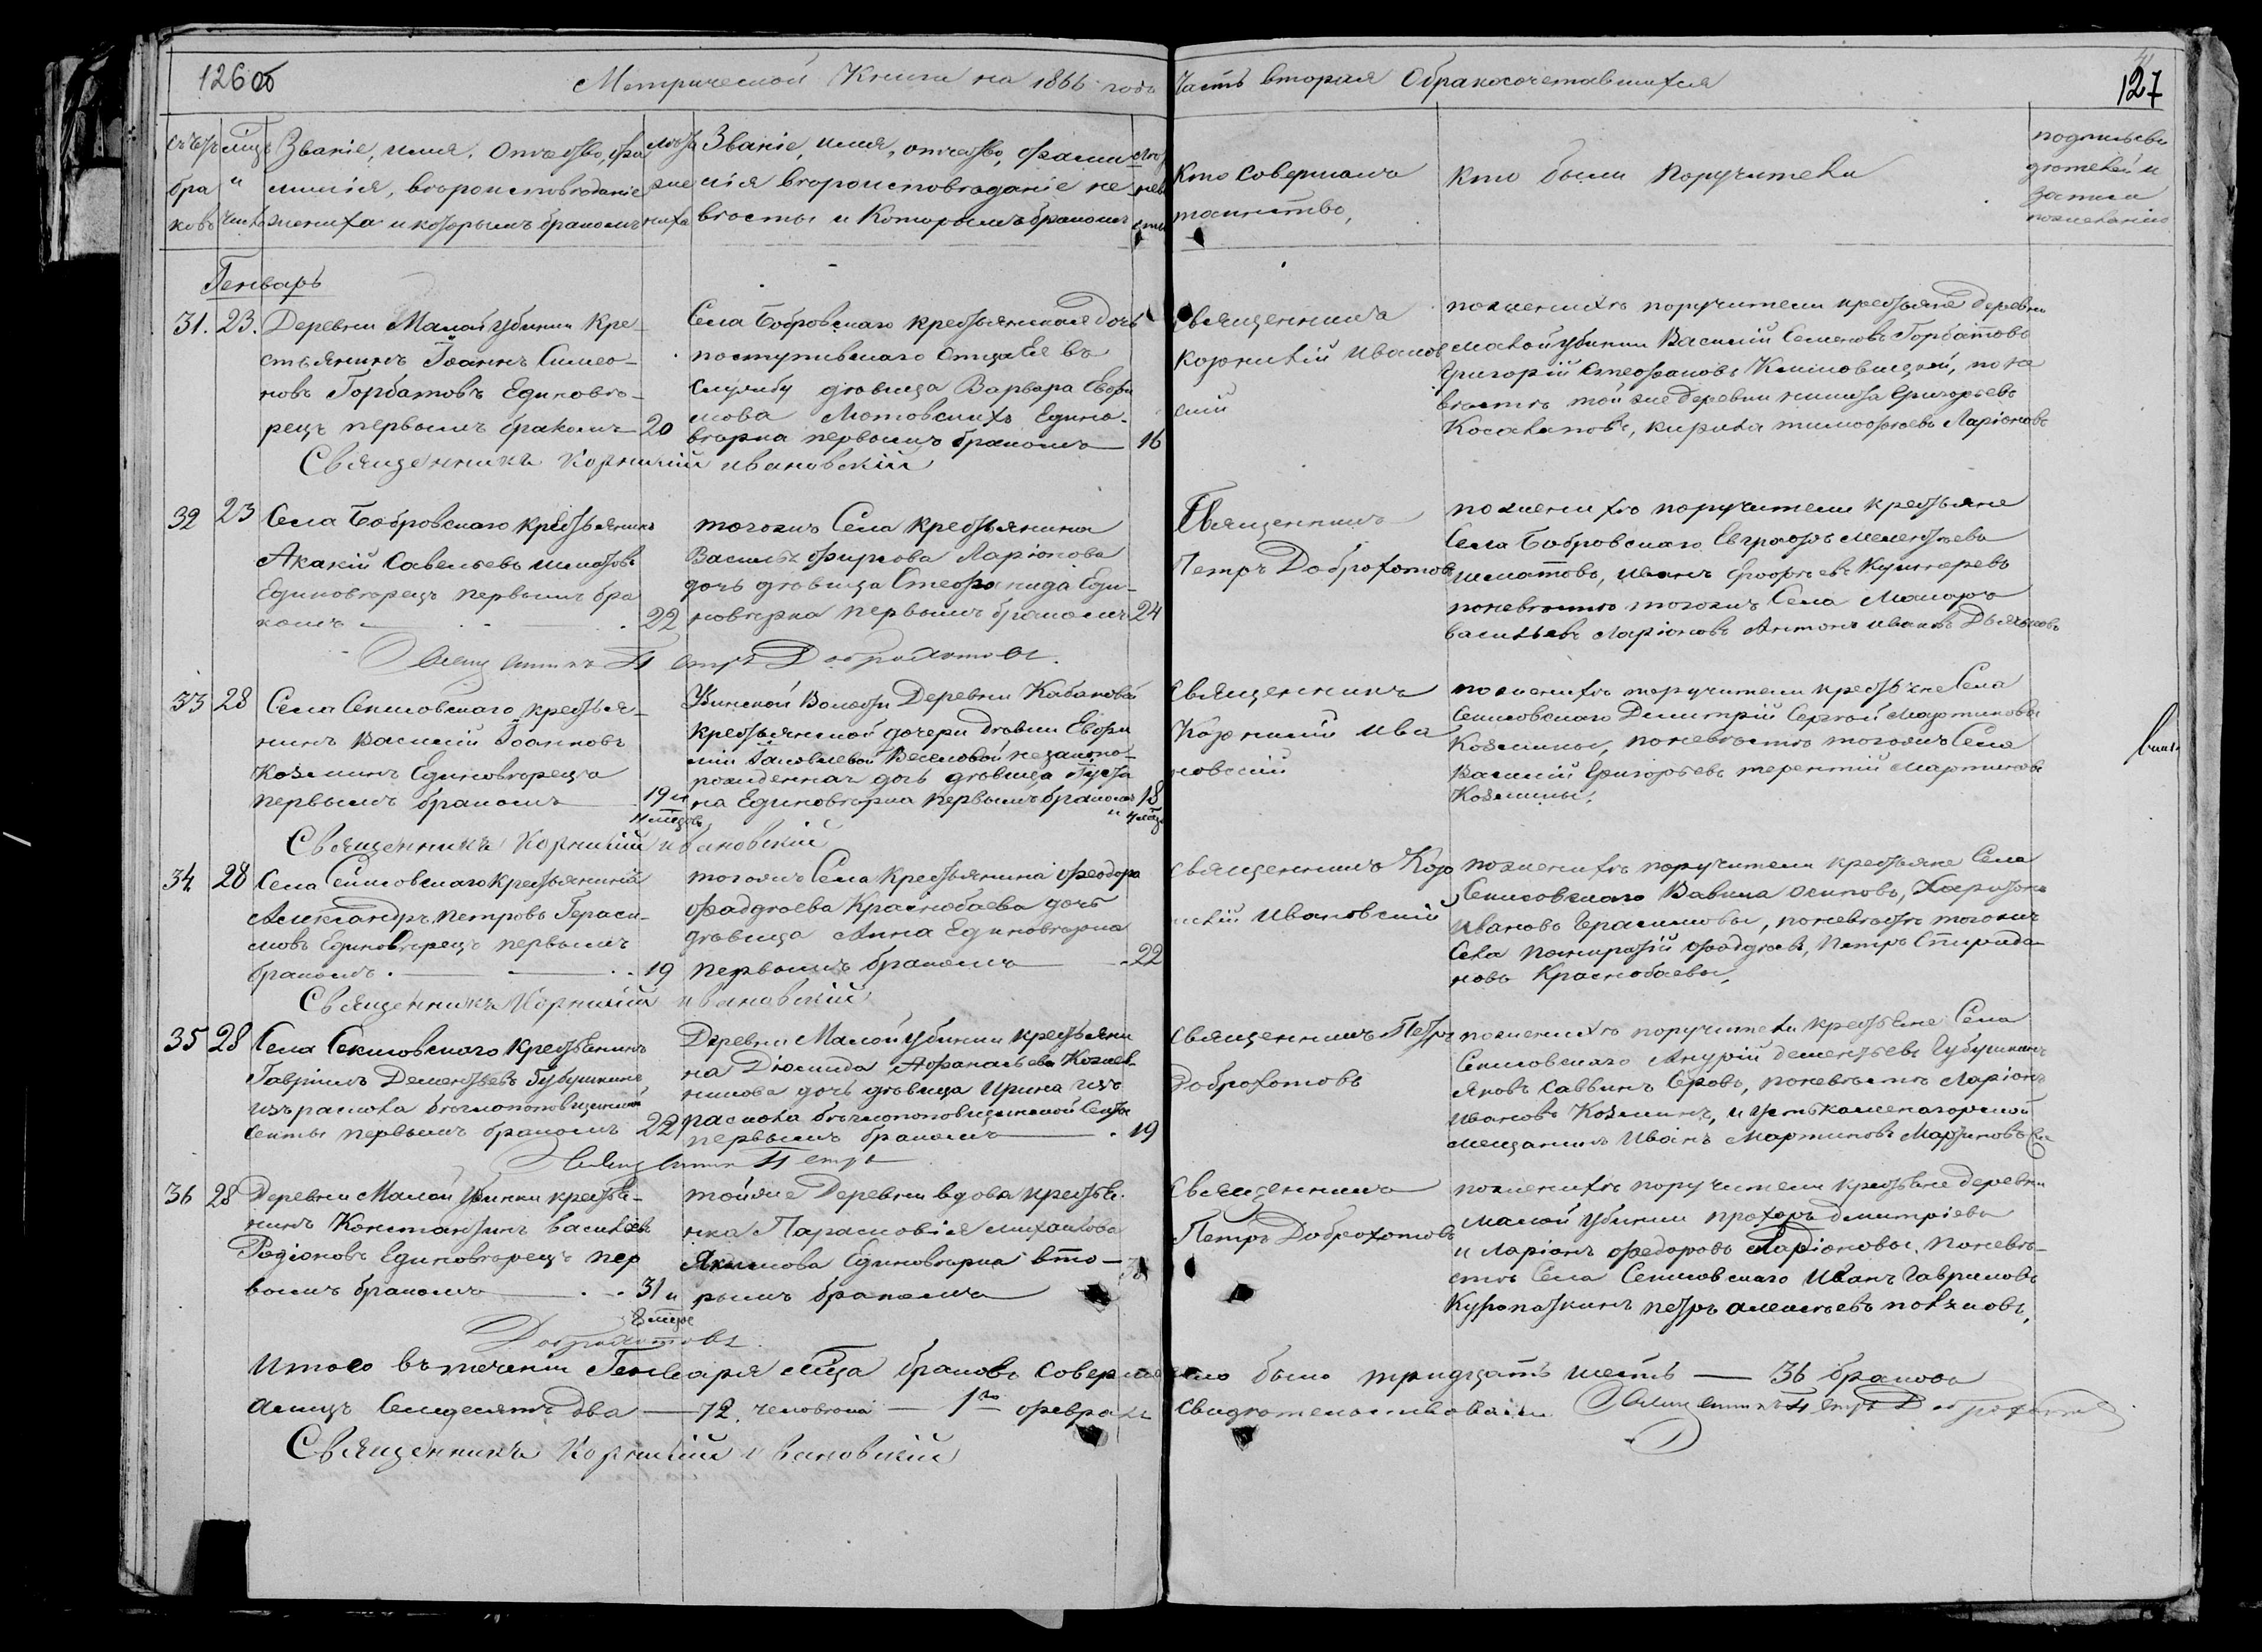 126 об
Метрической Книги на 1866 годъ
Часть вторая О бракосочетавшихся
127
Званіе, имя, Отчество, фа
милія, вероисповеданіе
жениха и которымъ бракомъ
Званіе, имя, отчество, фами
лія вероисповеданіе не
весты и Которымъ бракомъ
Кто совершалъ
таинство,
Кто были Поручители
Генварь
31. 23.
Деревни Малой убинки Кре-
стьянинъ Іоаннъ Симео-
новъ Горбатовъ Единове-
рецъ первымъ бракомъ 20
Села Бобровскаго крестьянская дочь
поступившаго Отца Ея въ
службу девица Варвара Евфи
мова Мотовскихъ Едино-
верка первымъ бракомъ 16
Священника
Корнилій Иванов
скій
по женихе поручители крестьяне деревни
малой убинки Василій Семеновъ Горбатовъ
Григорій Стефановъ Климовицкой, по не
весте той же деревни никита Григорьевъ
Косалаповъ, кирила тимофеевъ Ларіоновъ
Священникъ Корнилій ивановскій
32 23
Села Бобровскаго крестьянинъ
Акакій Савельевъ
Единоверецъ первымъ бра
комъ 22
тогожъ Села крестьянина
Василья фирсова Ларіонова
дочь девица Стефанида Еди-
новерка первымъ бракомъ 24
Священникъ
Петръ Доброхотовъ
по женихе поручители крестьяне
Села Бобровскаго Евграфъ мелентьевъ
иванъ Ерофеевъ
по невесте тогожъ Села Макаръ
васильевъ Ларіоновъ Антонъ ивановъ Дьяконовъ
Священникъ Петръ Доброхотовъ.
33 28
Села Секисовскаго крестья-
нинъ Василій Іоанновъ
Козминъ Единоверецъ
первымъ бракомъ 19 и
Убинской Волости Деревни Кабановой
крестьянской дочери девки Евфи
міи Яковлевой Веселовой незаконно-
рожденная дочь девица Уста
на Единоверка первымъ бракомъ 18
Священникъ
Корнилій Ива
новскій
по женихе поручители крестьяне Села
Секисовскаго Димитрій Сергей Мартиновы
Козмины, по невесте тогожъ Села
Василій Григорьевъ терентій Мартиновъ
Козмины.
Священникъ Корнилій ивановскій
34 28
Села Секисовскаго Крестьянинъ
Александръ петровъ Гераси-
мовъ Единоверецъ первымъ
бракомъ 19
тогожъ Села Крестьянина Феодора
Фаддеева Краснобаева дочь
девица Анна Единоверка
первымъ бракомъ 22
священникъ Кор
нилій Ивановскій
по женихе поручители крестьяне Села
Секисовскаго Вавила Осиповъ, Харитонъ
Ивановъ Герасимовы, по невесте тогожъ
Села Панкратій Фаддеевъ, Петръ Спиридо
новъ Краснобаевы.
Священникъ Корнилій ивановскій
35 28
Села Секисовскаго Крестьянинъ
Гавріилъ Дементьевъ Губушкинъ
изъ раскола беглопоповщинской
секты первымъ бракомъ 22
Деревни Малой убинки крестьяни
на Діомида Афанасьева
дочь девица Ирина изъ
раскола беглопоповщинской Секты
первымъ бракомъ 19
священникъ Петръ
Доброхотовъ
по женихе поручители крестьяне Села
Секисовскаго Анурій дементьевъ Губушкинъ
Яковъ Саввинъ Серовъ, по невесте Ларіонъ
Ивановъ Козминъ, и устькаменогорской
мещанинъ Иванъ Мартиновъ Мартиновъ
Священникъ Петръ
36 28
Деревни Малой Убинки крестья-
нинъ Константинъ васильевъ
Родіоновъ Единоверецъ пер
вымъ бракомъ 31 и
8 месяц
той же Деревни вдова крестья-
нка Парасковія михаилова
Якимова Единоверка вто-
рымъ бракомъ
Священника
Петръ Доброхотовъ
по женихе поручители крестьяне деревни
малой убинки прохоръ дмитріевъ
и ларіонъ федоровъ Ларіоновы. по неве-
сте Села Секисовскаго Иванъ Гавриловъ
Куропаткинъ петръ алексеевъ
Доброхотовъ
Итого въ теченіи Генваря м-ца браковъ совершено было тридцать шесть — 36 браковъ
а лицъ Семдесятъ два — 72. человека — 1го февраля свидетельствовали Священникъ Петръ Доброхотовъ
Священникъ Корнилій ивановскій